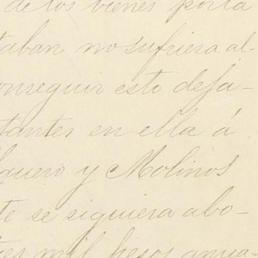 de los bienes porta
taban no sufriera al-
onseguir esto deja-
tantes en ella á
quero y Molinos
te se siguiera abo-
tres mil pesos anua-